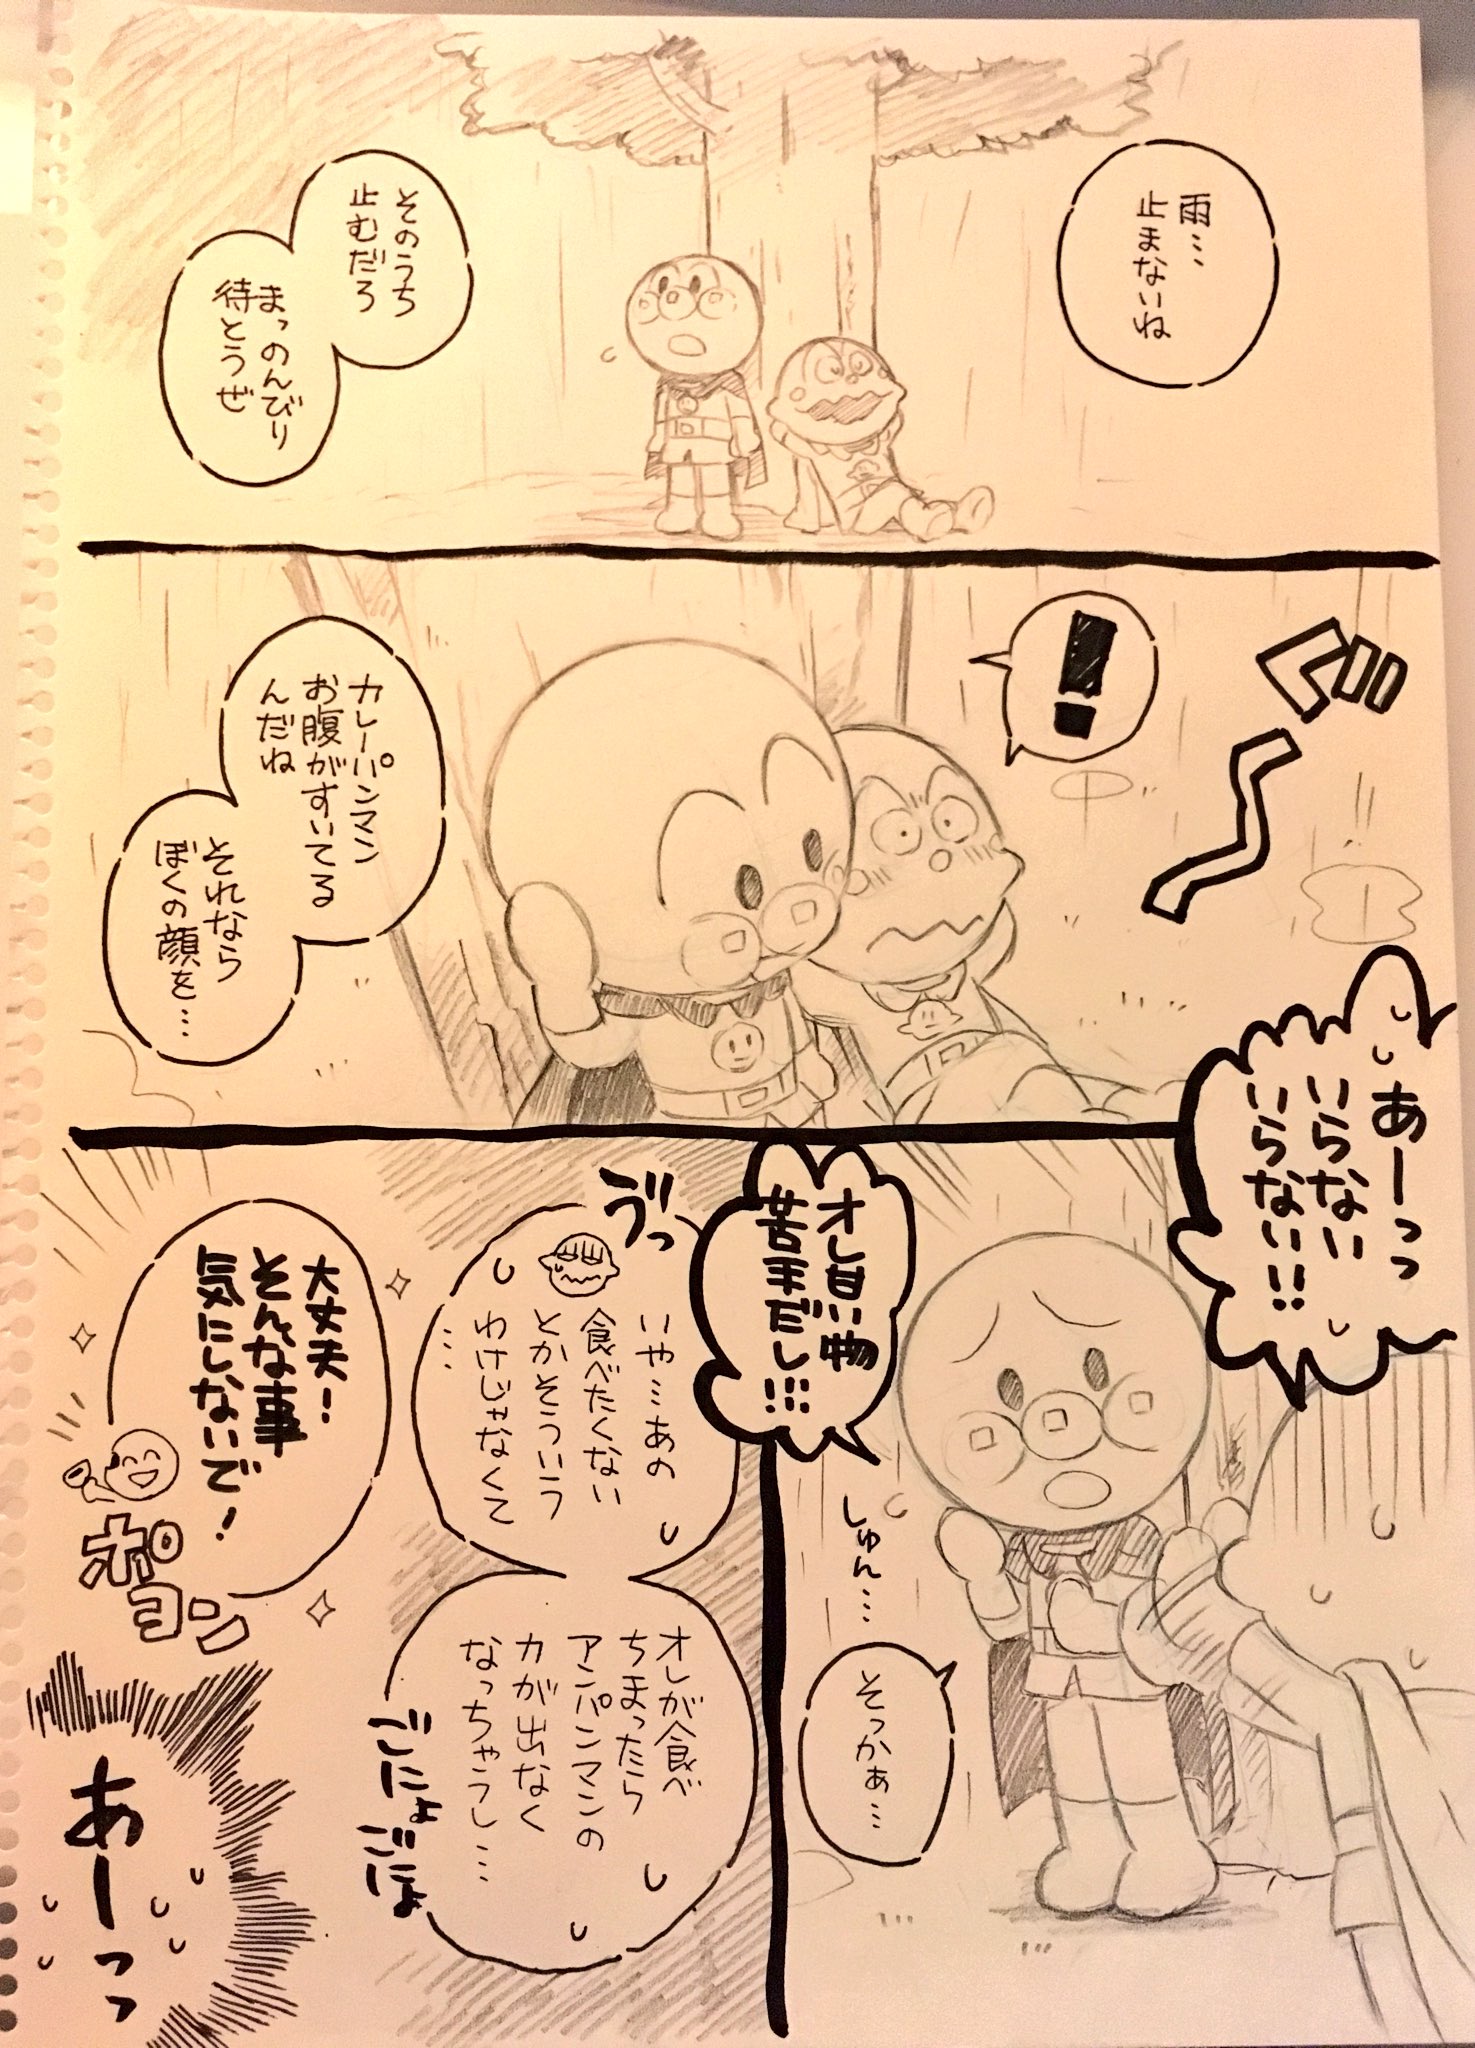 雨…
止まないね
そのうち
止むだろ
まっのんびり
待とうぜ
ぐ〜
!
カレーパンマン
お腹がすいてる
んだね
それなら
ぼくの顔を…
あーっっ
いらない
いらない!!
オレ甘い物
苦手だし!!!
しゅん…
そっかぁ…
ゔっ
いや…あの
食べたくない
とかそういう
わけじゃなくて
…
オレが食べ
ちまったら
アンパンマンの
力が出なく
なっちゃうし…
ごにょ
ごにょ
大丈夫!
そんな事
気にしないで!
ポヨン
あーっっ